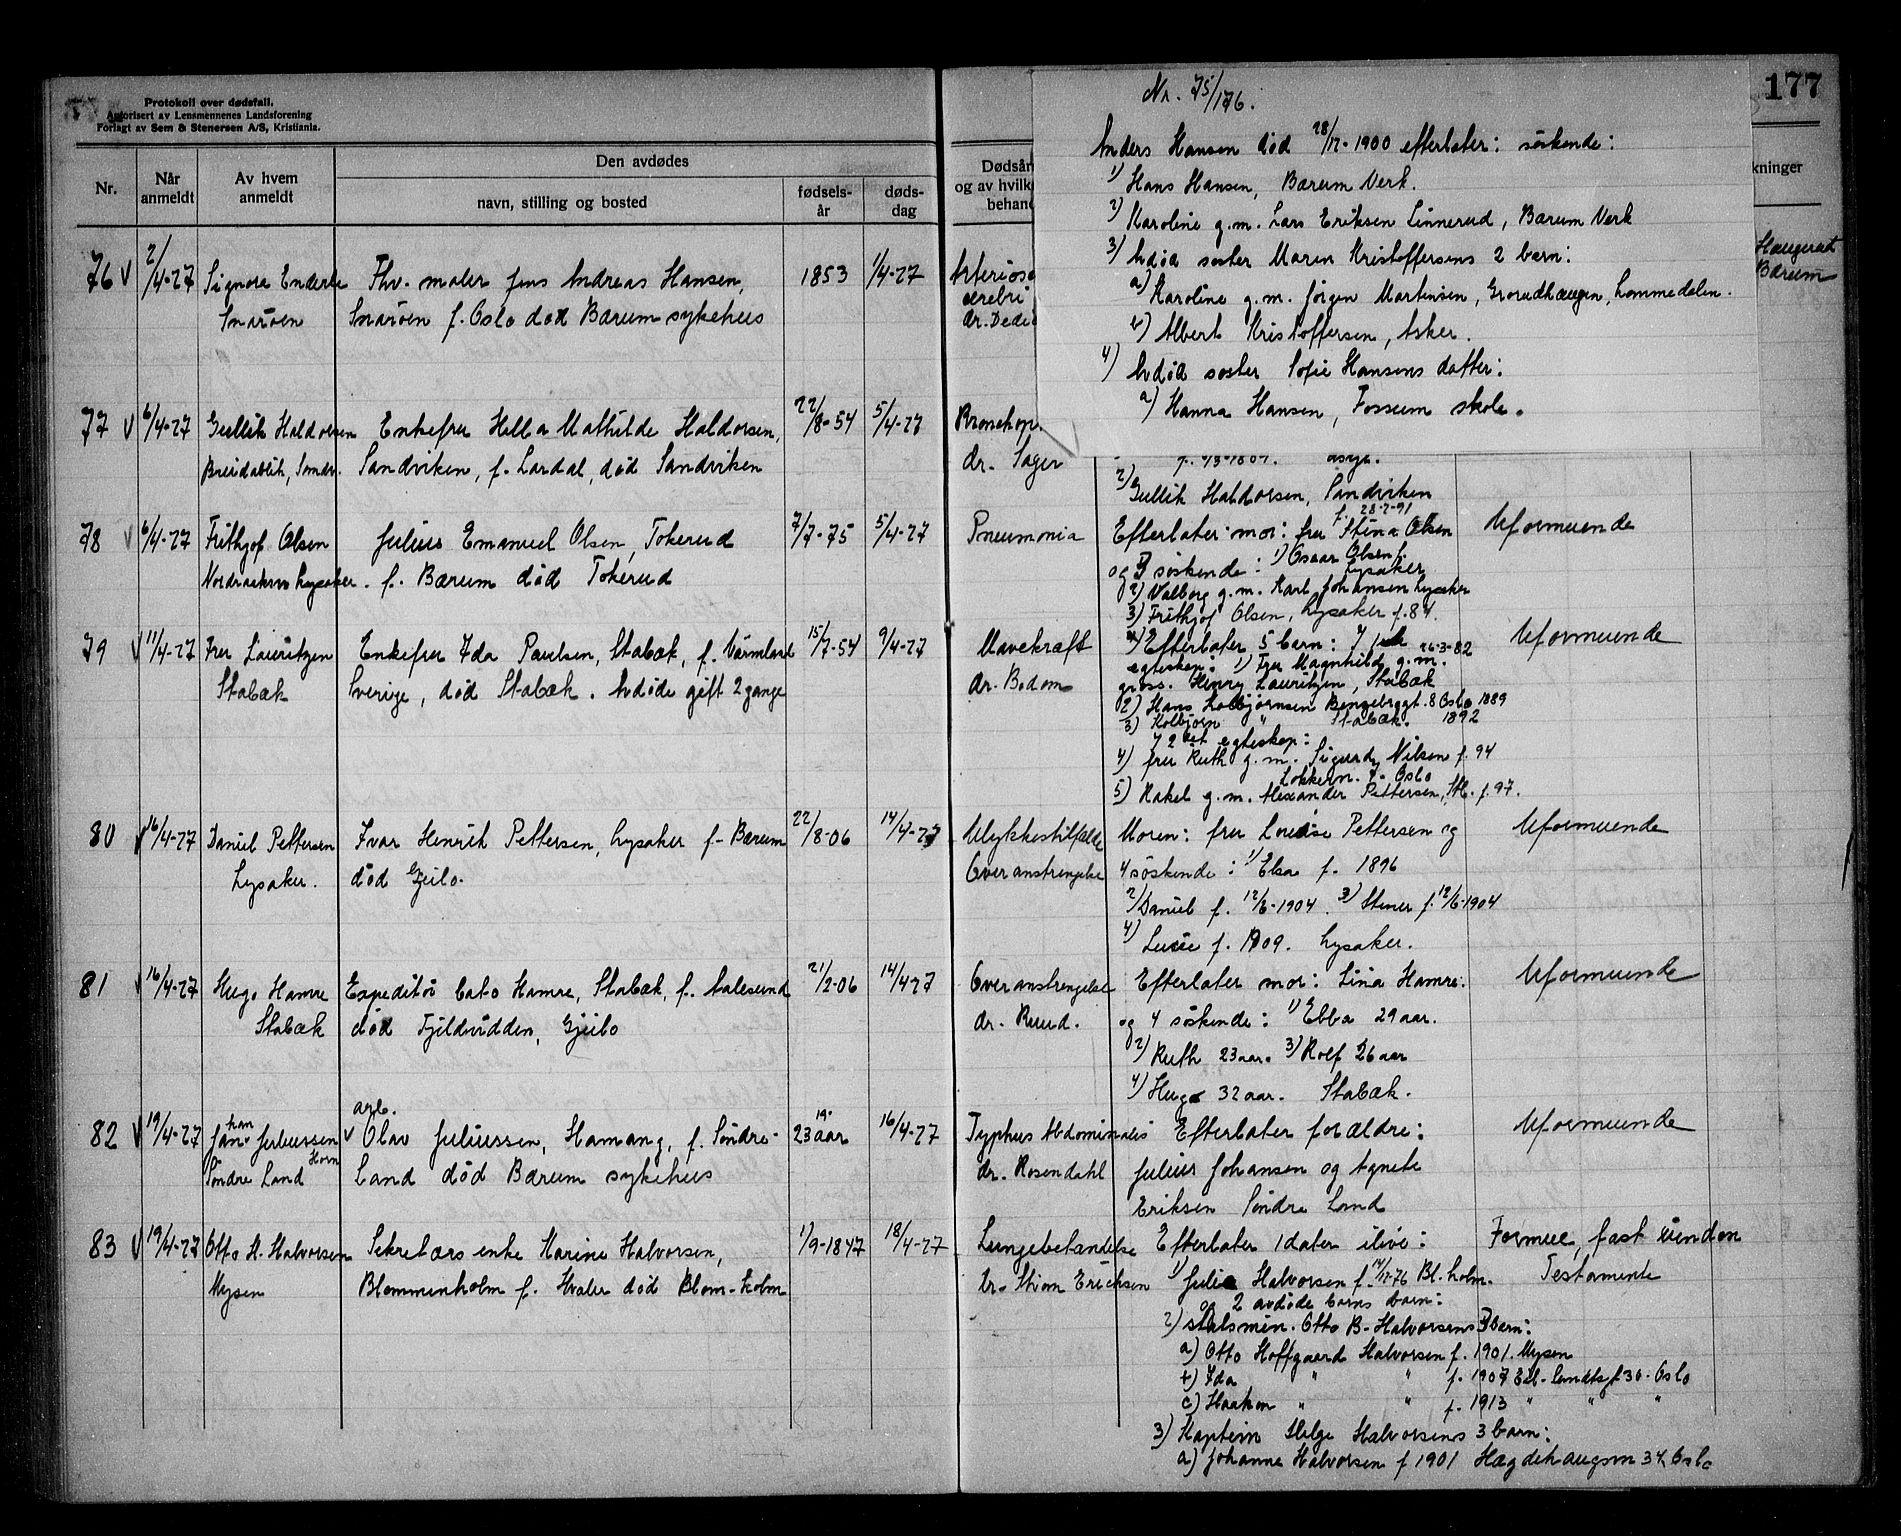 177
Protokoll over dødsfall.
Autorisert av Lensmennenes Landsforening
Forlagt av Sem & Stenersen A/S, Kristiania.
Nr.
Når anmeldt
Av hvem anmeldt
Den avdødes
navn, stilling og bosted
fødsels-år
døds-dag
76 2/4-27 Signora Enderle Fhv. maler Jens Andreas Hansen, 1853 1/4-27
Snarøen Snarøen f. Oslo død Bærum sykehus
77 6/4-27 Gullik Haldorsen Enkefru Hella Mathilde Haldorsen, 22/8-54 5/4-27
Breidablik, Sandv. Sandviken, f. Lardal, død Sandviken
78 6/4-27 Frithjof Olsen Julius Emanuel Olsen, Tokerud 7/7-75 5/4-27
Lysaker. f. Bærum død Tokerud
79 11/4-27 Fru Lauritzen Enkefru Ida Paulsen, Stabæk, f. Värmland 15/7-54 9/4-27
Stabæk Sverige, død Stabæk. Avdøde gift 2 gange
80 16/4-27 Daniel Pettersen Ivar Henrik Pettersen, Lysaker f. Bærum 22/8-06 14/4-27
Lysaker. død Gjeilo.
81 16/4-27 Hugo Hamre Expeditør Cato Hamre, Stabæk, f. Aalesund 21/2-06 14/4 27
Stabæk død Fjeldvidden, Gjeilo
arb.
82 19/4-27 Jan Juliussen Olav Juliussen, Hamang, f. Søndre- 23 aar 16/4-27
Søndre Land Land død Bærum sykehus
83 19/4-27 Otto H. Halvorsen Sekretærs enke Karine Halvorsen, 1/9-1847 18/4-27
Mysen Blommenholm f. Hvaler død Blom-holm
Nr. 75/176.
Anders Hansen død 28/12-1900 efterlater: søskende:
1) Hans Hansen, Bærum Verk.
2) Karoline g.m. Lars Eriksen Linnerud, Bærum Verk
3) Avdød søster Maren Kristoffersens 2 barn:
a) Karoline g.m. Jørgen Martinsen, Grorudhaugen, Lommedalen.
b) Albert Kristoffersen, Asker.
4) Avdød søster Sofie Hansens datter:
a) Hanna Hansen, Fossum skole.
Dødsår
og av hvilk
behand
kninger
Haugerud
Bærum
Arterios
cerebri
dr. Dedi
Bronchop.
dr. Sager
2) Gullik Haldorsen, Sandviken
f. 28-2-91
Pneumonia Efterlater mor: fru Stina Olsen Uformuende
og 3 søskende: 1) Oscar Olsen f.
Lysaker
2) Valborg g.m. Karl Johansen Lysaker
3) Frithjof Olsen, Lysaker f. 84.
Mavekræft Efterlater 5 barn: I 1ste Uformuende
26-3-82
egteskap: 1) Fru Magnhild g.m.
dr. Bodom gross. Henry Lauritzen, Stabæk
2) Hans Kolbjørnsen 8 Oslo 1889
3) Kolbjørn " Stabæk. 1892
I 2det egteskap:
4) fru Ruth g.m. Sigurd Nilsen f. 94
Oslo
5) Rakel g.m. Alexander Pettersen, Stb. f. 97.
Ulykkestilfælde Moren: fru Louise Pettersen og Uformuende
Overanstrengelse 4 søskende: 1) Elsa f. 1896
2) Daniel f. 12/6-1904. 3) Stener f. 12/6-1904
4) Lucie f. 1909. Lysaker.
Overanstrengelse Efterlater mor: Lina Hamre. Uformuende
dr. Ruud. og 4 søskende: 1) Ebba 29 aar.
2) Ruth 23 aar. 3) Rolf 26 aar
4) Hugo 32 aar. Stabæk.
Typhus Abdominalis Efterlater forældre: Uformuende
dr. Rosendahl Julius Johansen og Agnete
Eriksen Søndre Land
Lungebetændelse Efterlater 1 dater ilive: Formue, fast eiendom
dr. Strøm Erichsen 1) Julie Halvorsen f. 14/12-76 Bl.holm. Testamente
og 2 avdøde barns barn:
2) statsmin. Otto B. Halvorsens 3 barn:
a) Otto Hoffgaard Halvorsen f. 1901. Mysen
b) Ida " " f. 1907 Eil. Sundtsgt 30. Oslo
c) Haakon " " f. 1913 " " "
3) Kaptein Helge Halvorsens 3 barn:
a) Johanne Halvorsen f 1901 Hægdehaugsvn 34 Oslo